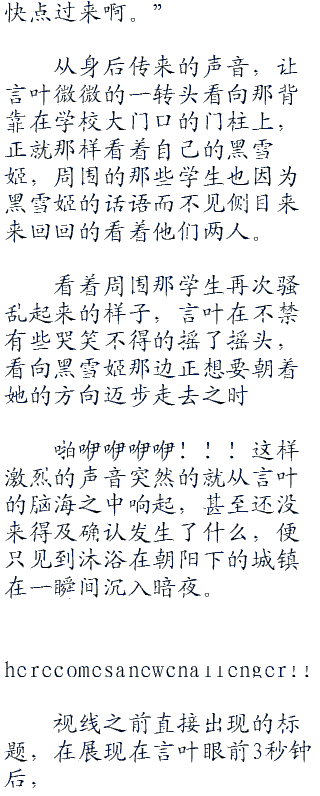 快点过来啊。”
从身后传来的声音，让
言叶微微的一转头看向那背
靠在学校大门口的门柱上，
正就那样看着自己的黑雪
姬，周围的那些学生也因为
黑雪姬的话语而不见侧目来
来回回的看着他们两人。
看着周围那学生再次骚
乱起来的样子，言叶在不禁
有些哭笑不得的摇了摇头，
看向黑雪姬那边正想要朝着
她的方向迈步走去之时
啪咿咿咿咿！！！这样
激烈的声音突然的就从言叶
的脑海之中响起，甚至还没
来得及确认发生了什么，便
只见到沐浴在朝阳下的城镇
在一瞬间沉入暗夜。
herecomesanewchallenger!!
视线之前直接出现的标
题，在展现在言叶眼前3秒钟
后，